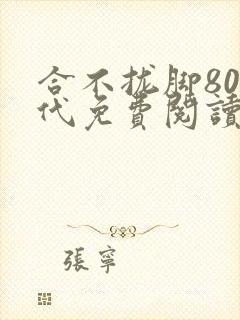 合不拢脚80
代免費閱讀
張寧